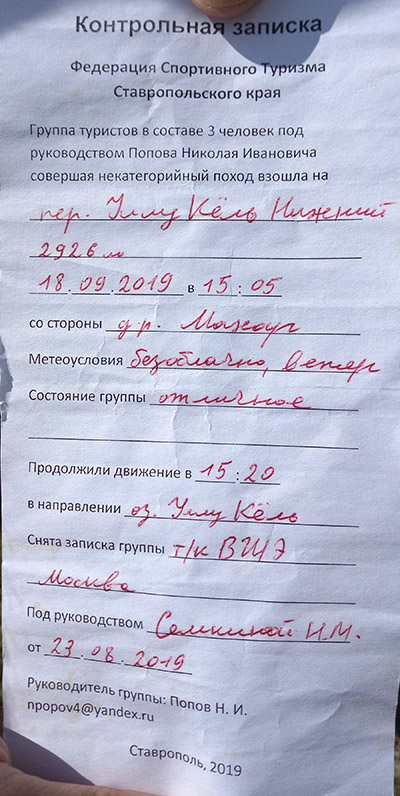 Контрольная записка
Федерация Спортивного Туризма
Ставропольского края
Группа туристов в составе 3 человек под
руководством Попова Николая Ивановича
совершая некатегорийный поход взошла на
пер. Уллу Кёль Нижний
2926 м
18.09.2019 в 15:05
со стороны д.р. Махар
Метеоусловия безоблачно, ветер
Состояние группы отличное
Продолжили движение в 15:20
в направлении оз. Уллу Кёль
Снята записка группы т/к ВШЭ
Москва
Под руководством Семкиной Н.М.
от 23.08.2019
Руководитель группы: Попов Н. И.
npopov4@yandex.ru
Ставрополь, 2019